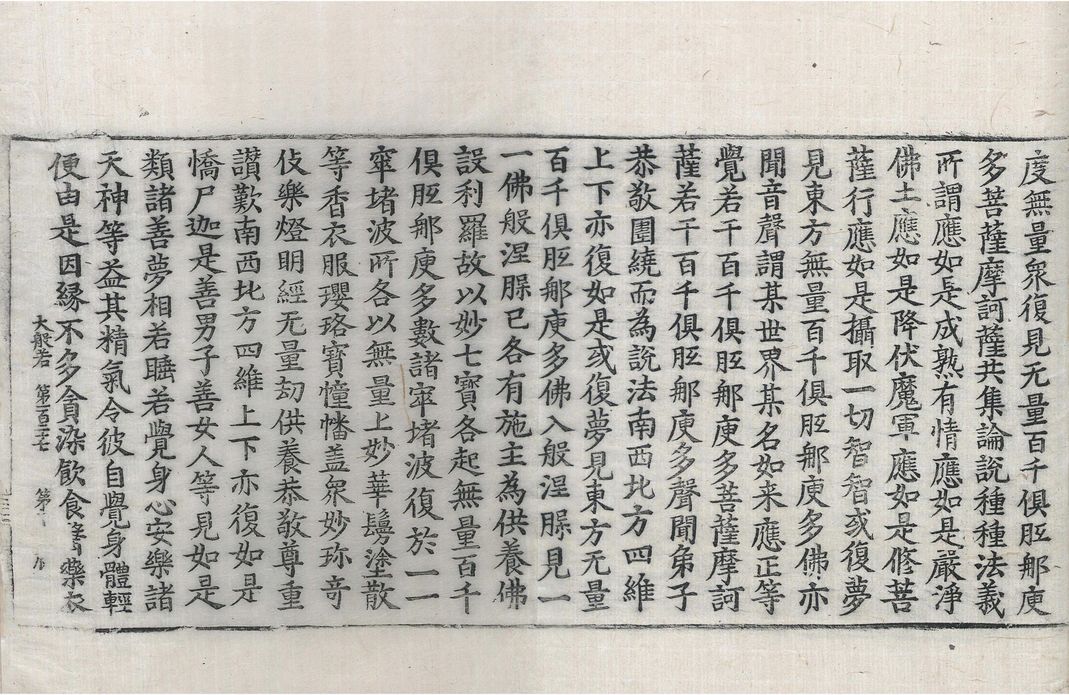 度無量衆復見无量百千俱胝那庾
多菩薩摩訶薩共集論說種種法義
所謂應如是成熟有情應如是嚴淨
佛土應如是降伏魔軍應如是修菩
薩行應如是攝取一切智智或復夢
見東方無量百千俱胝那庾多佛亦
聞音聲謂某世界某名如来應正等
覺若干百千俱胝那庾多菩薩摩訶
薩若干百千俱胝那庾多聲聞弟子
恭敬圍繞而為說法南西北方四維
上下亦復如是或復夢見東方无量
百千俱胝那庾多佛入般涅槃見一
一佛般涅槃已各有施主為供養佛
設利羅故以妙七寶各起無量百千
俱胝那庾多數諸窣堵波復於一一
窣堵波所各以無量上妙華鬘塗散
等香衣服瓔珞寶幢幡盖衆妙珎奇
伎樂燈明經无量劫供養恭敬尊重
讃歎南西北方四維上下亦復如是
憍尸迦是善男子善女人等見如是
類諸善夢相若睡若覺身心安樂諸
天神等益其精氣令彼自覺身體輕
便由是因緣不多貪染飲食醫藥衣
大般若 第一百二七 第